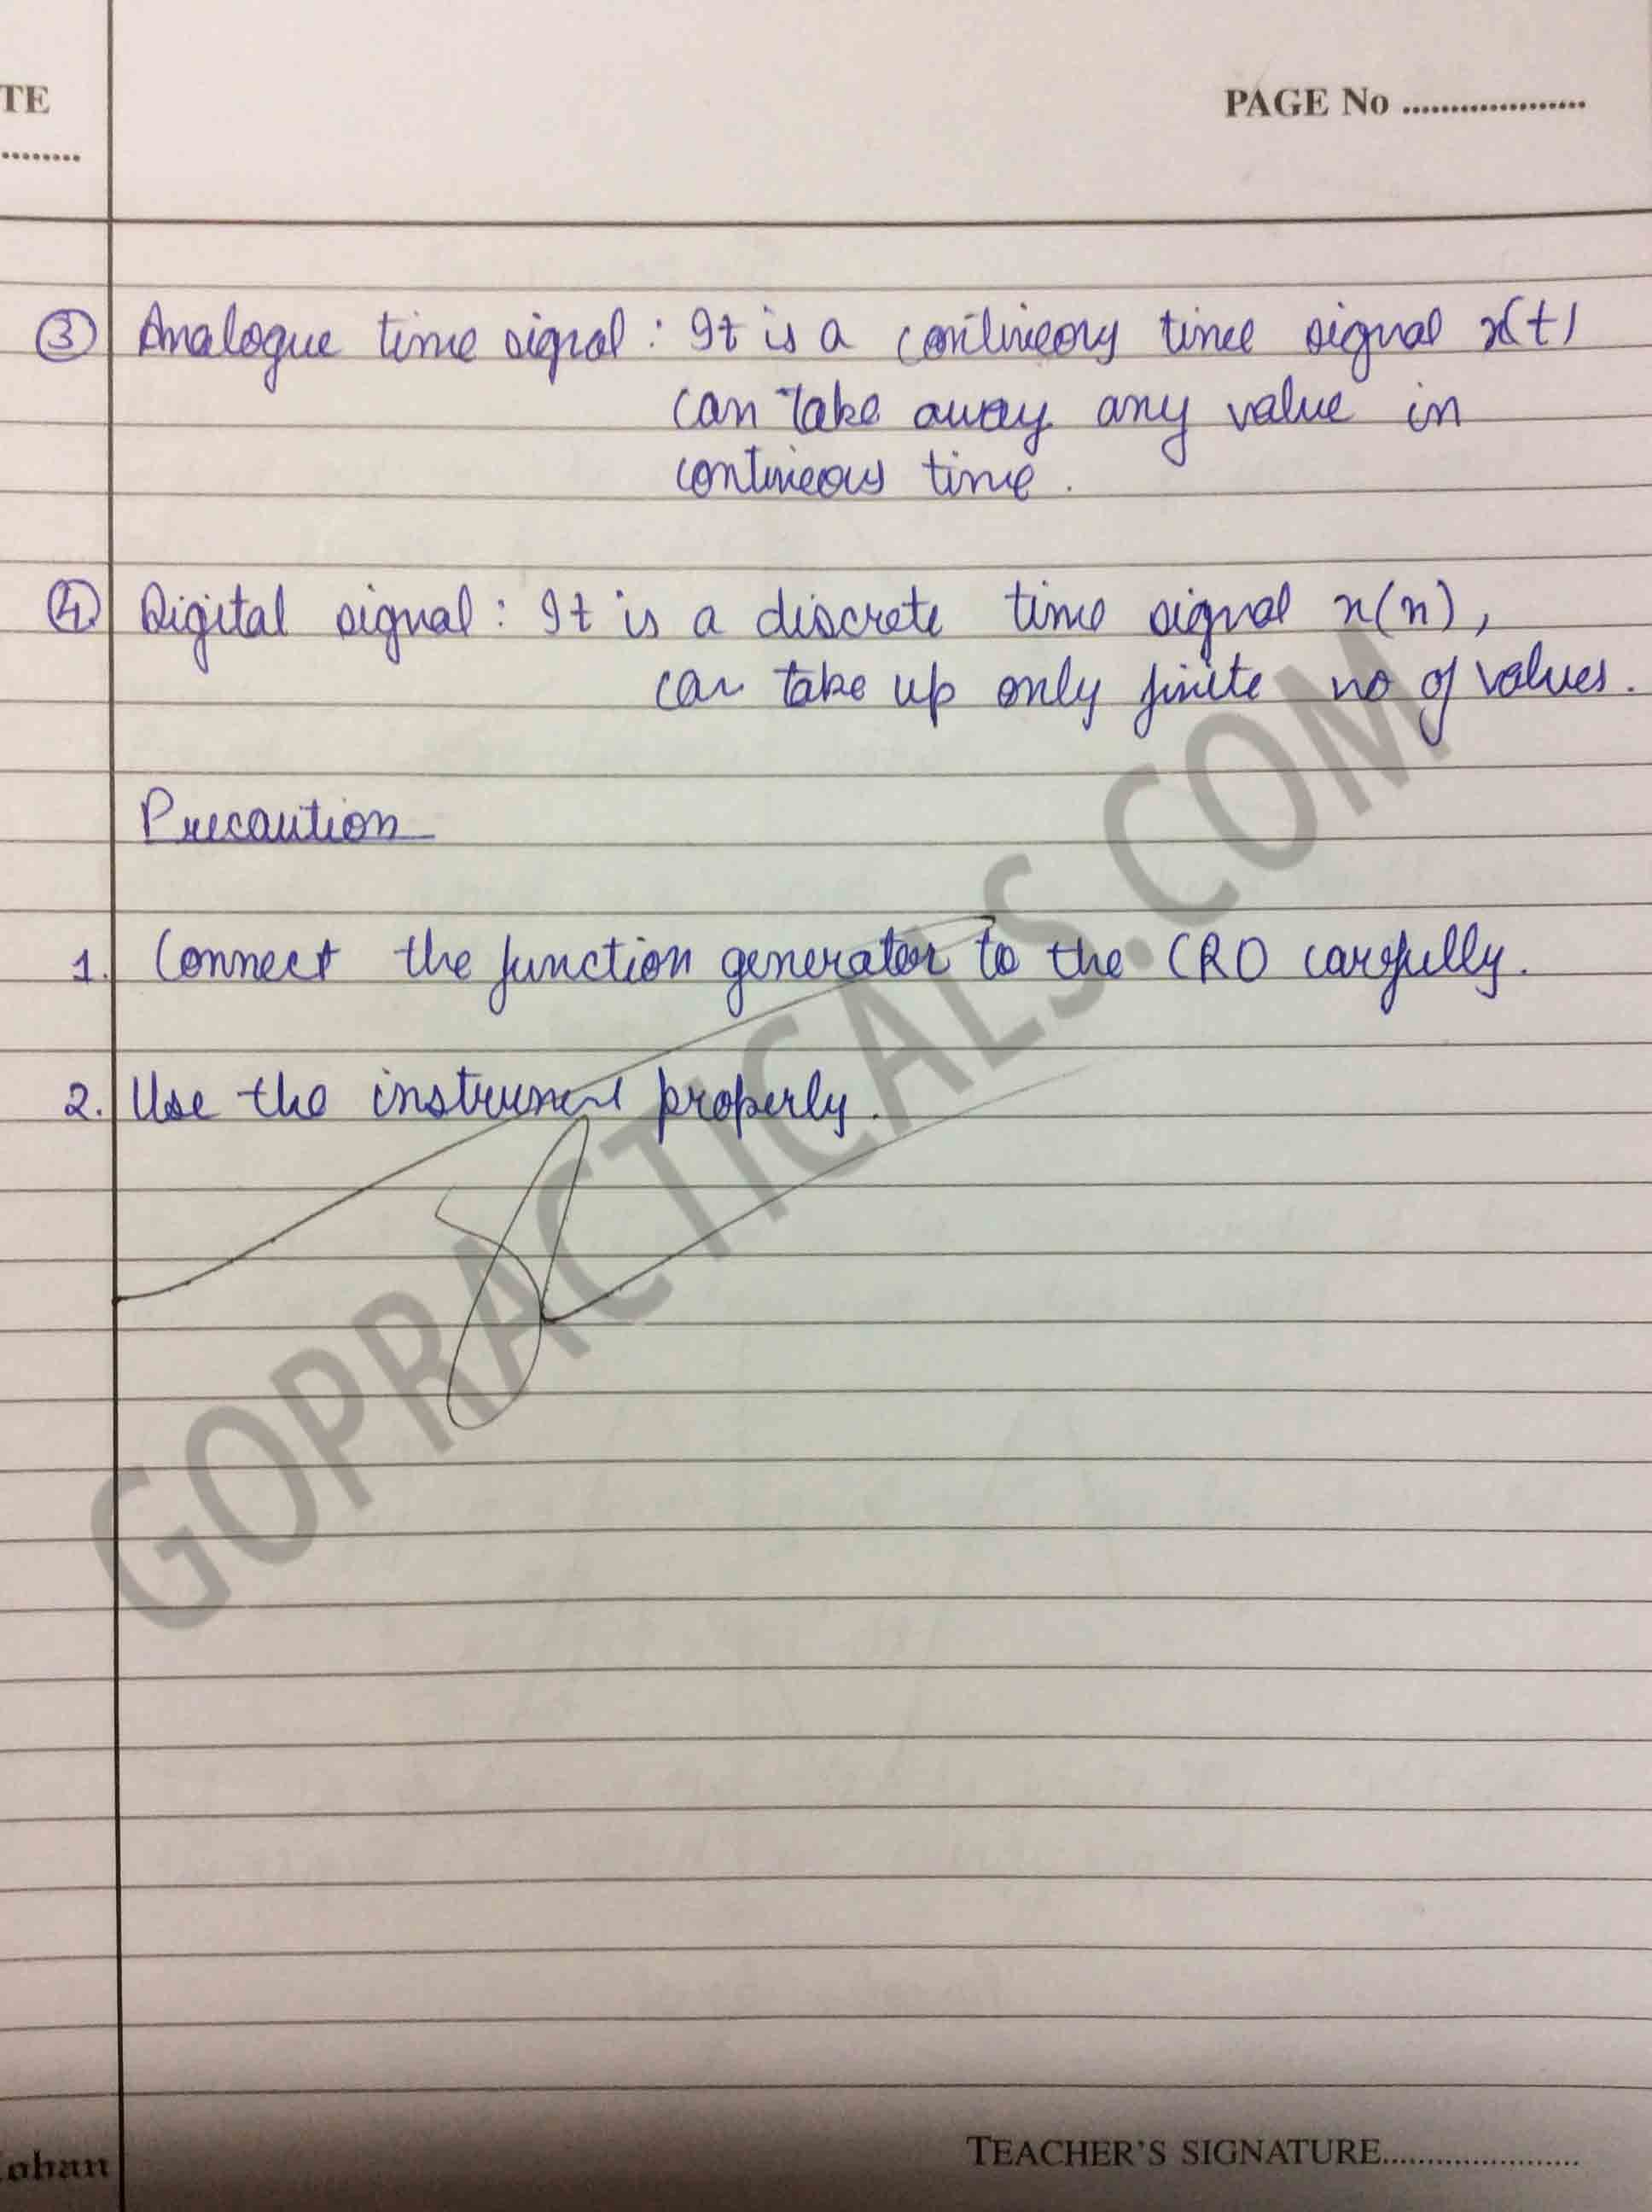 TE
PAGE No ...................
........
③ Analogue time signal : It is a contineous time signal x(t)
can take away any value in
contineous time.
④ Digital signal : It is a discrete time signal x(n),
can take up only finite no of values.
Precaution
1. Connect the function generator to the CRO carefully.
2. Use the instrument properly.
GOPRACTICALS.COM
ohan
TEACHER'S SIGNATURE......................